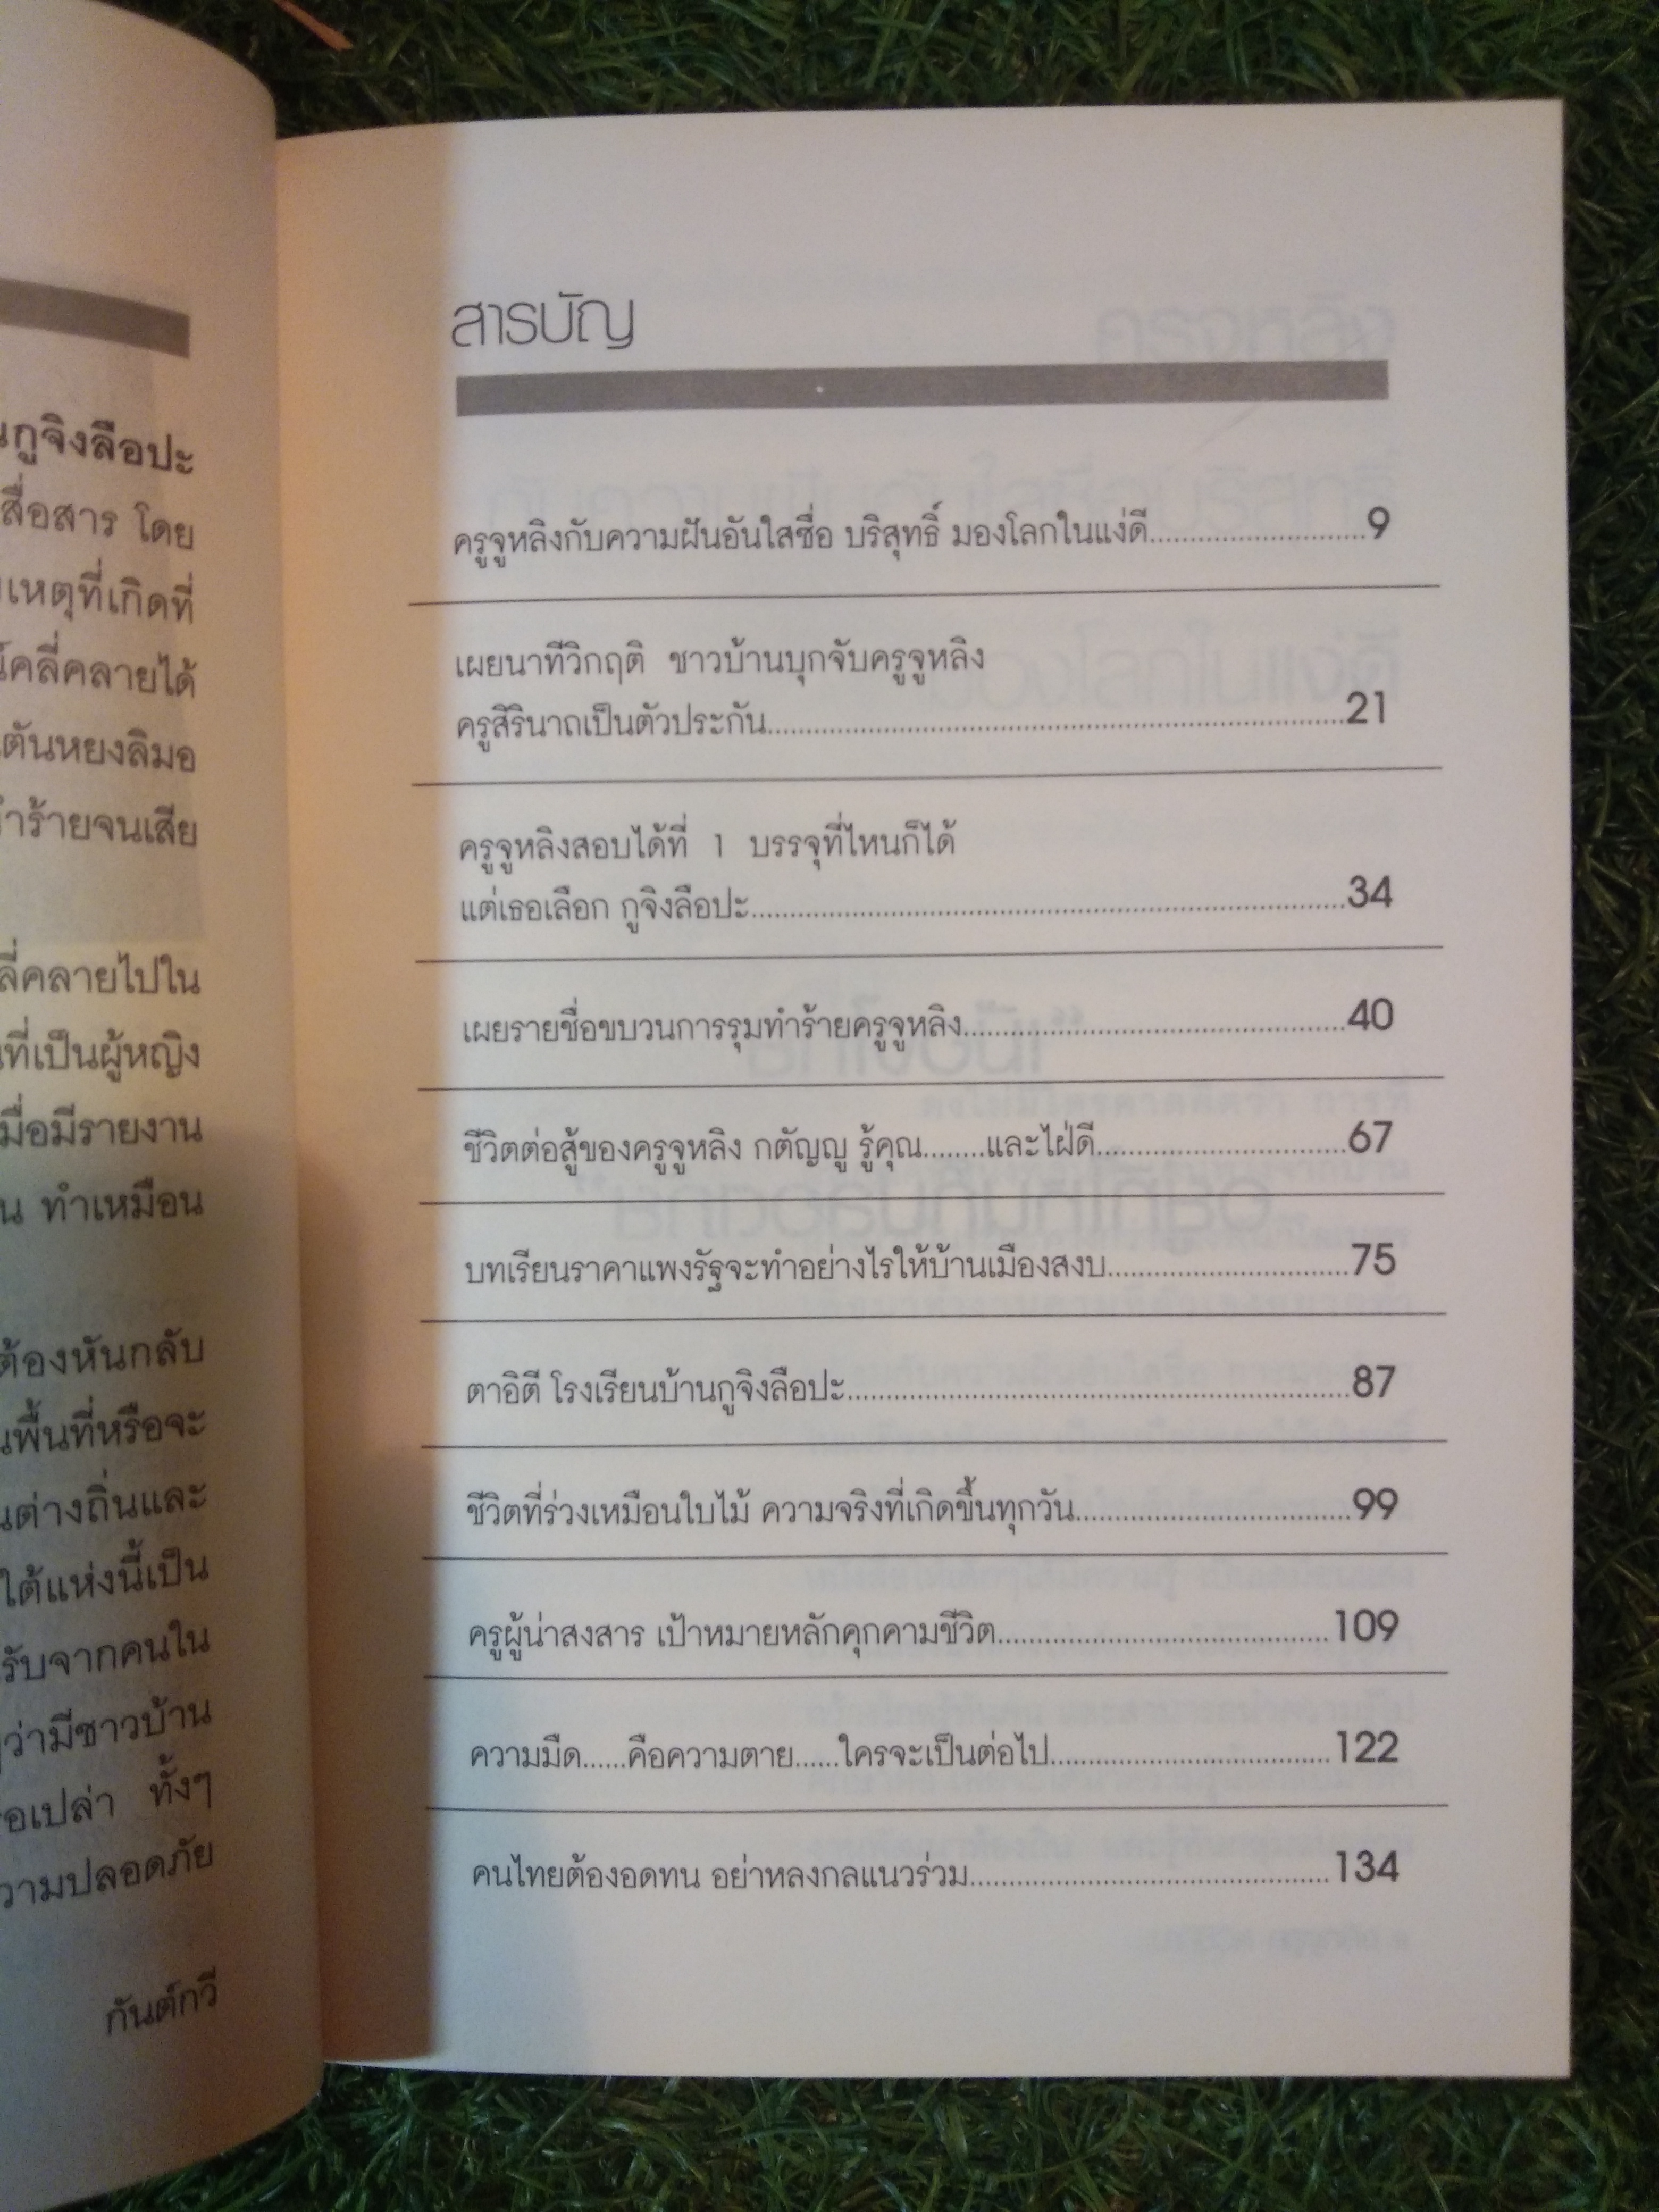 กูจิงลือปะ
สื่อสาร โดย
เหตุที่เกิดที่
คลี่คลายได้
ตันหยงลิมอ
ทำร้ายจนเสีย
ลี่คลายไปใน
ที่เป็นผู้หญิง
มื่อมีรายงาน
น ทำเหมือน
ต้องหันกลับ
พื้นที่หรือจะ
นต่างถิ่นและ
ใต้แห่งนี้เป็น
รับจากคนใน
ว่ามีชาวบ้าน
อเปล่า ทั้งๆ
วามปลอดภัย
กันต์กวี
สารบัญ
ครูจูหลิงกับความฝันอันใสซื่อ บริสุทธิ์ มองโลกในแง่ดี............................9
เผยนาทีวิกฤติ ชาวบ้านบุกจับครูจูหลิง
ครูสิรินาถเป็นตัวประกัน............................................................................21
ครูจูหลิงสอบได้ที่ 1 บรรจุที่ไหนก็ได้
แต่เธอเลือก กูจิงลือปะ..............................................................................34
เผยรายชื่อขบวนการรุมทำร้ายครูจูหลิง..................................................40
ชีวิตต่อสู้ของครูจูหลิง กตัญญู รู้คุณ........และไฝ่ดี.................................67
บทเรียนราคาแพงรัฐจะทำอย่างไรให้บ้านเมืองสงบ................................75
ตาอิตี โรงเรียนบ้านกูจิงลือปะ..................................................................87
ชีวิตที่ร่วงเหมือนใบไม้ ความจริงที่เกิดขึ้นทุกวัน....................................99
ครูผู้น่าสงสาร เป้าหมายหลักคุกคามชีวิต............................................109
ความมืด......คือความตาย......ใครจะเป็นต่อไป.....................................122
คนไทยต้องอดทน อย่าหลงกลแนวร่วม...............................................134